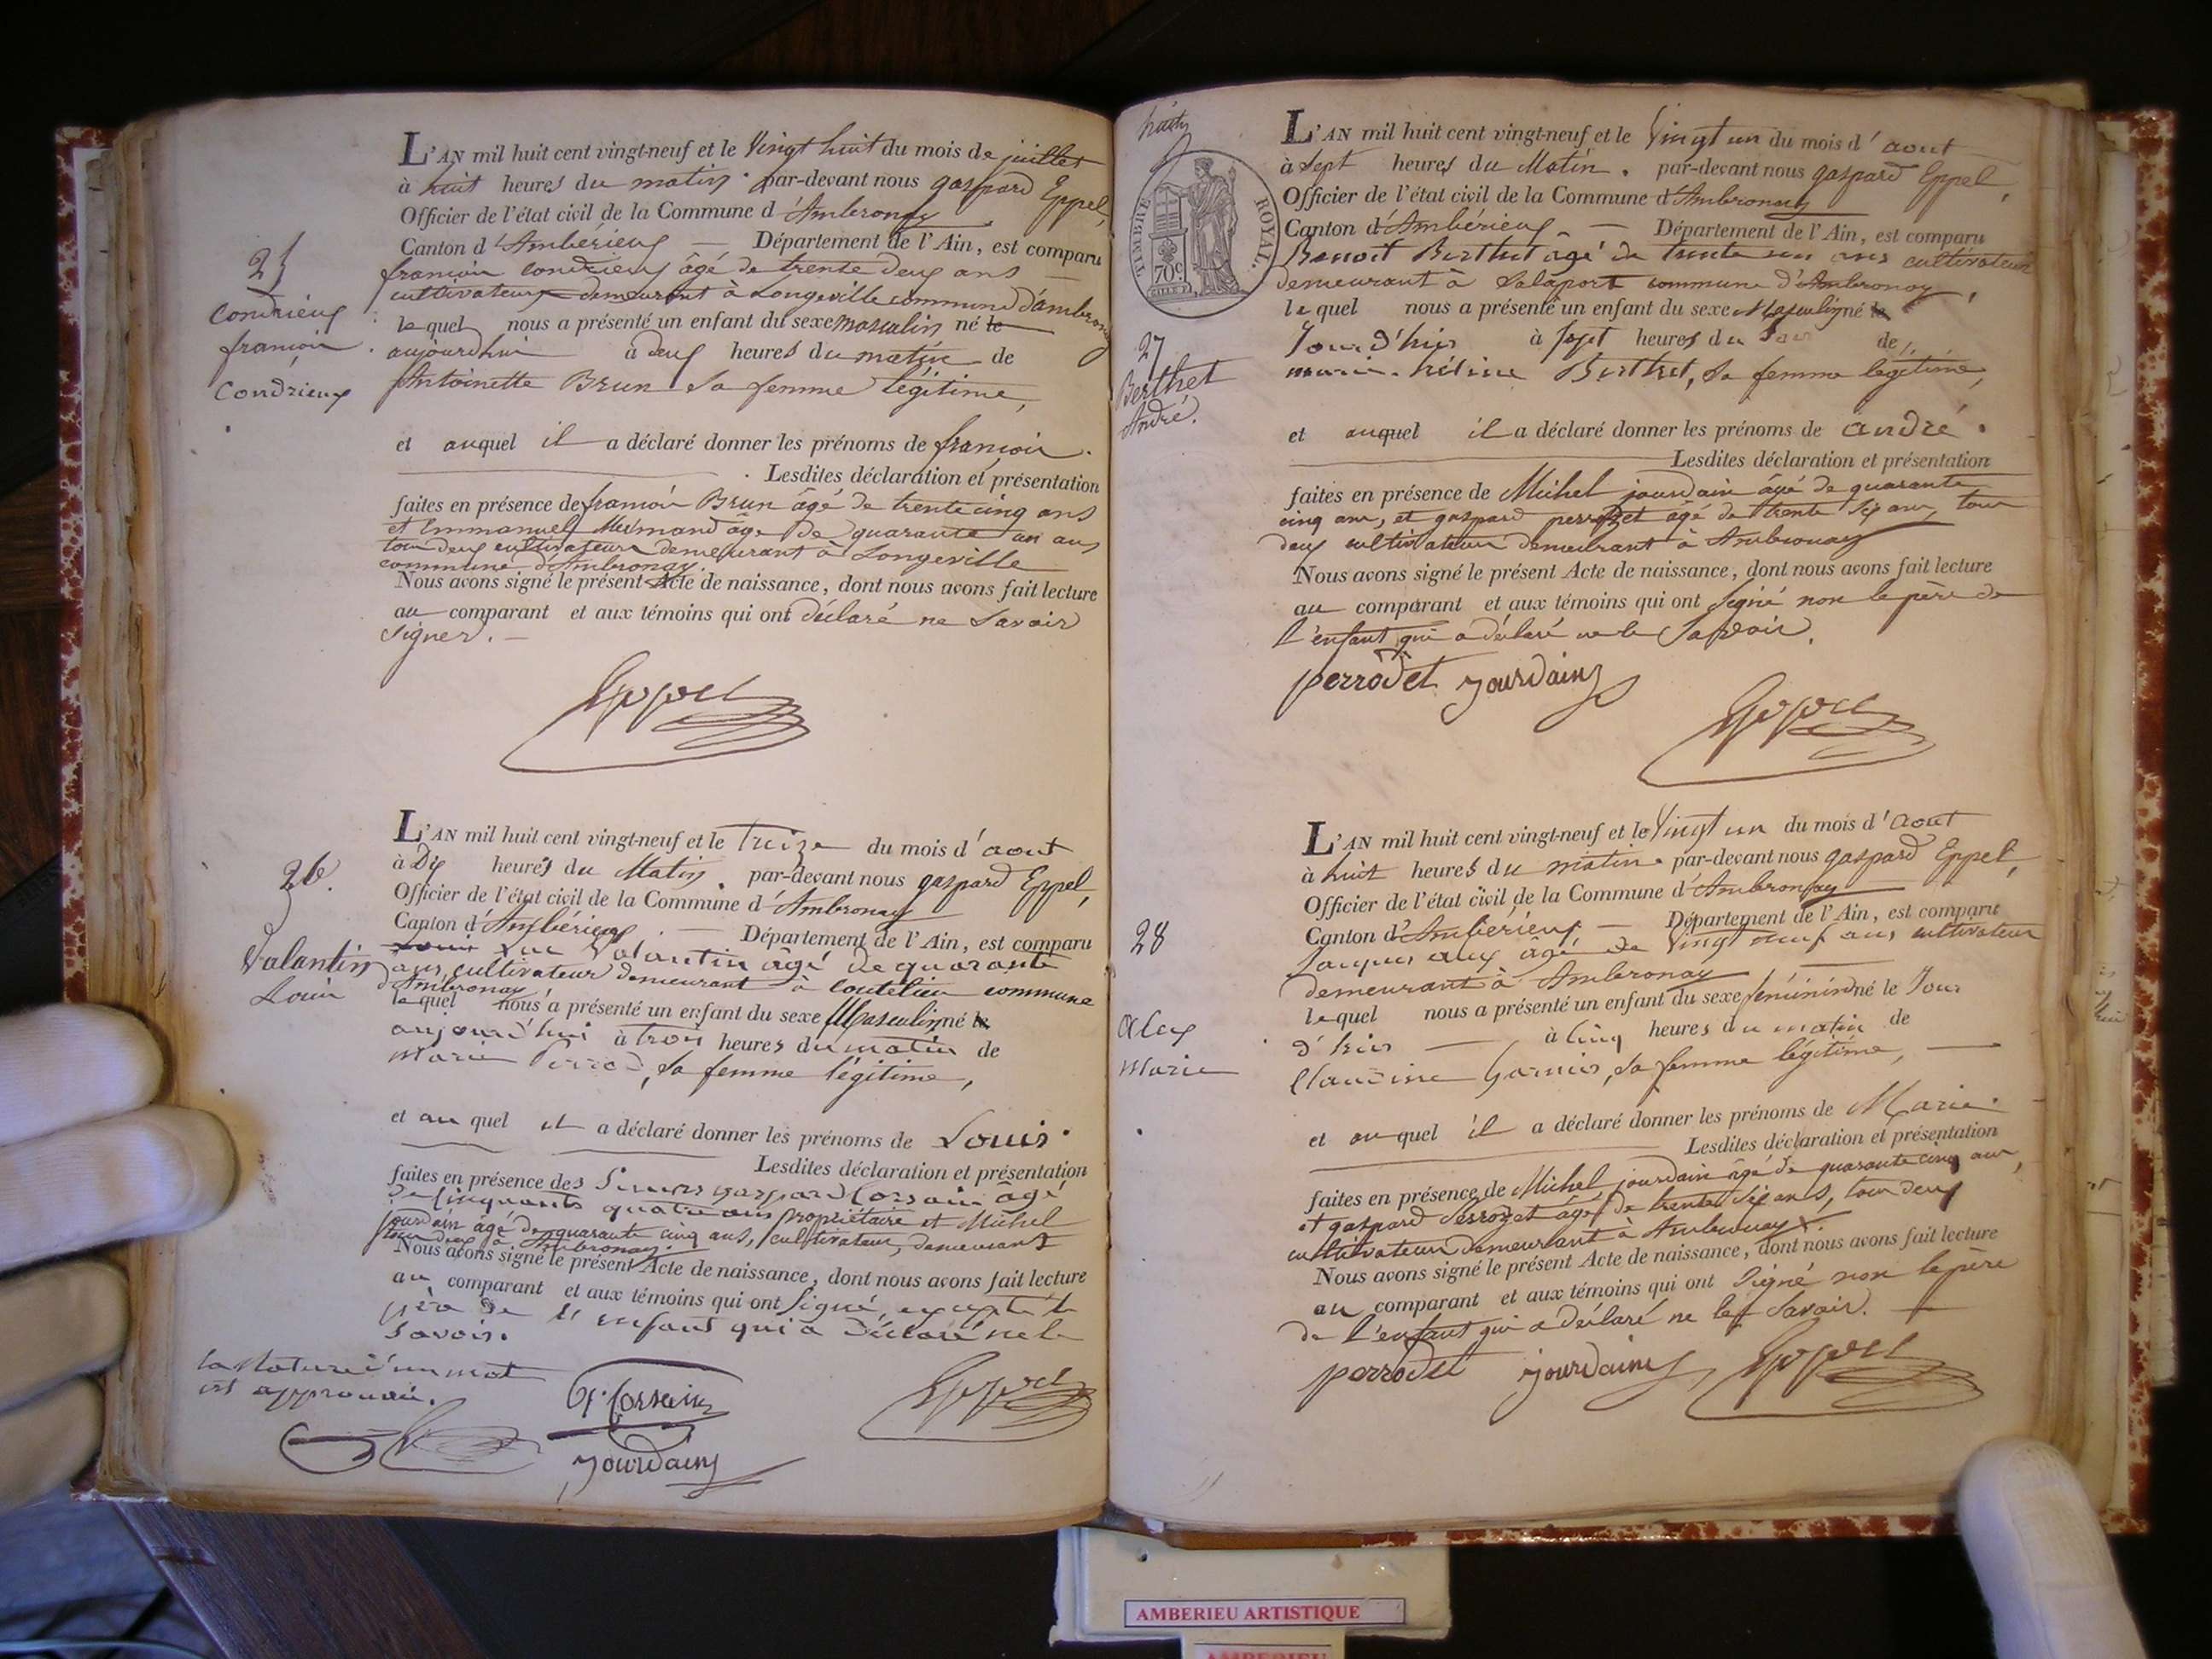 25
Condrieux
françois
Condrieux
L'AN mil huit cent vingt-neuf et le Vingt huit du mois de juillet
à huit heures du matin. par-devant nous gaspard Eppel,
Officier de l'état civil de la Commune d'Ambronay
Canton d'Ambérieux — Département de l'Ain, est comparu
françois condrieux âgé de trente deux ans
cultivateur demeurant à Longeville commune d'ambronay
lequel nous a présenté un enfant du sexe masculin né le
aujourdhui à deux heures du matin de
Antoinette Brun sa femme légitime,
et auquel il a déclaré donner les prénoms de françois.
Lesdites déclaration et présentation
faites en présence de françois Brun âgé de trente cinq ans
et Emmanuel âgé de quarante un ans
tous deux cultivateurs demeurant à Longeville
commune d'Ambronay.
Nous avons signé le présent Acte de naissance, dont nous avons fait lecture
au comparant et aux témoins qui ont déclaré ne Savoir
signer. —
Eppel
26.
Valantin
Louis
L'AN mil huit cent vingt-neuf et le Treize du mois d'aout
à Dix heures du Matin. par-devant nous gaspard Eppel,
Officier de l'état civil de la Commune d'Ambronay
Canton d'Ambérieux. — Département de l'Ain, est comparu
Luc Valantin âgé de quarante
ans, cultivateur demeurant à coutelieu commune
d'Ambronay
lequel nous a présenté un enfant du sexe Masculin né le
aujourd'hui à trois heures du matin de
Marie , sa femme légitime,
et au quel il a déclaré donner les prénoms de Louis.
Lesdites déclaration et présentation
faites en présence des Sieurs gaspard Corsain âgé
de cinquante quatre ans propriétaire et Michel
jourdain âgé de quarante cinq ans, cultivateur, demeurant
tous deux à Ambronay.
Nous avons signé le présent Acte de naissance, dont nous avons fait lecture
au comparant et aux témoins qui ont Signé, excepté le
père de l'enfant qui a déclaré ne le
Savoir.
la Rature d'un mot
est approuvée.
G. Corsain
Eppel
jourdain
huit
TIMBRE ROYAL.
70c.
27
Berthet
André.
L'AN mil huit cent vingt-neuf et le Vingt un du mois d'aout
à Sept heures du Matin. par-devant nous gaspard Eppel,
Officier de l'état civil de la Commune d'Ambronay
Canton d'Ambérieux. — Département de l'Ain, est comparu
Benoit Berthet agé de trente un ans cultivateur
demeurant à Salaport commune d'Ambronay,
lequel nous a présenté un enfant du sexe Masculin né le
Jour d'hier à Sept heures du Soir de
marie. héline Berthet, sa femme légitime,
et auquel il a déclaré donner les prénoms de andré.
Lesdites déclaration et présentation
faites en présence de Michel jourdain âgé de quarante
cinq ans, et gaspard perrozet agé de trente Six ans, tous
deux cultivateurs demeurant a Ambronay
Nous avons signé le présent Acte de naissance, dont nous avons fait lecture
au comparant et aux témoins qui ont Signé non le père de
l'enfant qui a déclaré ne le Savoir.
perrodet jourdain
Eppel
28
aley
Marie
L'AN mil huit cent vingt-neuf et le Vingt un du mois d'aout
à huit heures du matin. par-devant nous gaspard Eppel,
Officier de l'état civil de la Commune d'Ambronay
Canton d'Ambérieux — Département de l'Ain, est comparu
Jacques aley âgé de Vingt neuf ans cultivateur
demeurant à Ambronay
lequel nous a présenté un enfant du sexe féminin né le Jour
d'hier — à Cinq heures du matin de
Claudine Garnier, sa femme légitime, —
et auquel il a déclaré donner les prénoms de Marie.
Lesdites déclaration et présentation
faites en présence de Michel jourdain âgé de quarante cinq ans,
et gaspard Perrozet âgé de trente Six ans, tous deux
cultivateurs demeurant à Ambronay.
Nous avons signé le présent Acte de naissance, dont nous avons fait lecture
au comparant et aux témoins qui ont Signé non le père
de l'enfant qui a déclaré ne le Savoir. —
perrodet jourdain Eppel
AMBERIEU ARTISTIQUE
AMBERIEU